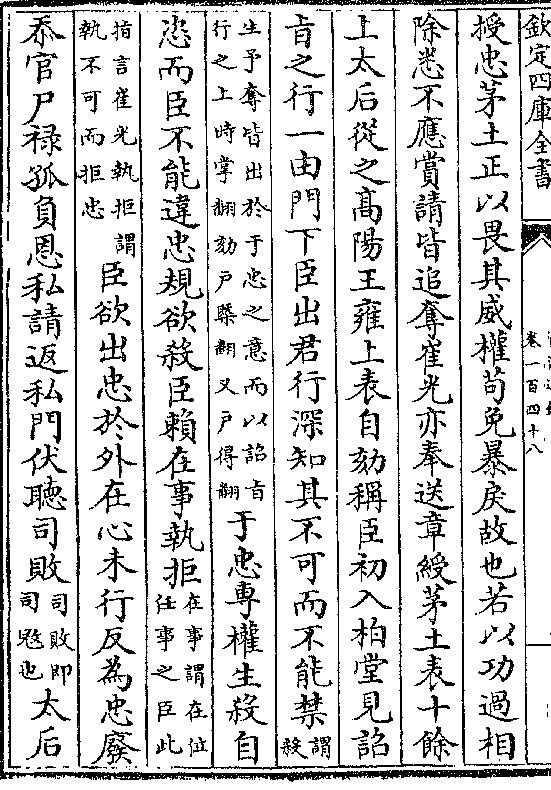 欽定四庫全書
卷一百四十八
授忠茅土正以畏其威權苟免暴戾故也若以功過相
除悉不應賞請皆追奪崔光亦奉送章綬茅土表十餘
上太后從之高陽王雍上表自劾稱臣初入柏堂見詔
旨之行一由門下臣出君行深知其不可而不能禁謂殺
生予奪皆出於于忠之意而以詔旨行之上時掌翻劾戶槩翻又戶得翻于忠專權生殺自
恣而臣不能違忠規欲殺臣賴在事執拒在事謂在位任事之臣此
指言崔光執拒謂執不可而拒忠臣欲出忠於外在心未行反為忠廢
忝官尸禄孤負恩私請返私門伏聽司敗司敗即司寇也太后